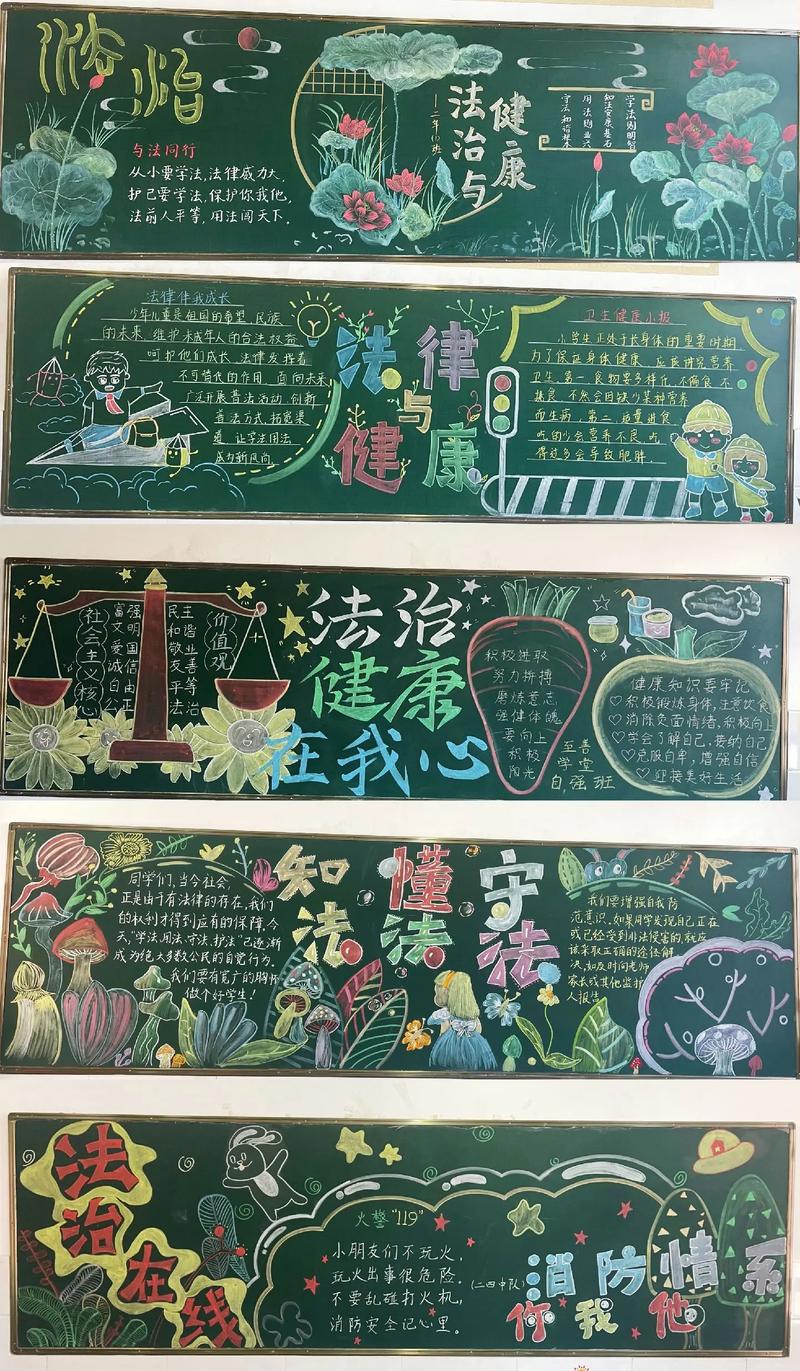 法治
与法同行
从小要学法,法律威力大,
护己要学法,保护你我他,
法前人平等,用法闯天下.
健康
法治与
学法则明智
知法安康基石
用法则业兴
守法和谐根本
法律伴我成长
少年儿童是祖国的希望 民族
的未来 维护未成年人的合法权益
呵护他们成长 法律发挥着
不可替代的作用 面向未来
广泛开展普法活动 创新
普法方式 拓宽渠
道 让学法用法
成为新风尚
法律
与
健康
卫生健康小报
小学生正处于长身体的重要时期
为了保证身体健康 应该讲究营养
卫生 第一 食物要多样化 不偏食 不
挑食 不然会因缺少某种营养
而生病 第二 适量进食
吃的少会营养不良 吃
得过多会导致肥胖
社会主义核心
富强 民主
文明 和谐
爱国 敬业
诚信 友善
自由 平等
公正 法治
价值观
法治
健康
在我心
积极进取
努力拼搏
磨炼意志
强健体魄
要向上
积极
阳光
至善
学堂
自强班
健康知识要牢记
♡积极锻炼身体,注意饮食
♡消除负面情绪,积极向上
♡学会了解自己,接纳自己
♡克服自卑,增强自信
♡迎接美好生活
同学们,当今社会,
正是由于有法律的存在,我们
的权利才得到应有的保障,今
天,"学法、用法、守法、护法"已逐渐
成为绝大多数公民的自觉行为.
我们要有宽广的胸怀
做个好学生!
知法
懂法
守法
我们要增强自我防
范意识,如果同学发现自己正在
或已经受到非法侵害的,就应
该采取正确的途径解
决,如及时向老师
家长或其他监护
人报告.
法治在线
火警"119"
小朋友们不玩火,
玩火出事很危险.
不要乱碰打火机,
消防安全记心里.
(二四中队)
消防情系
你我他